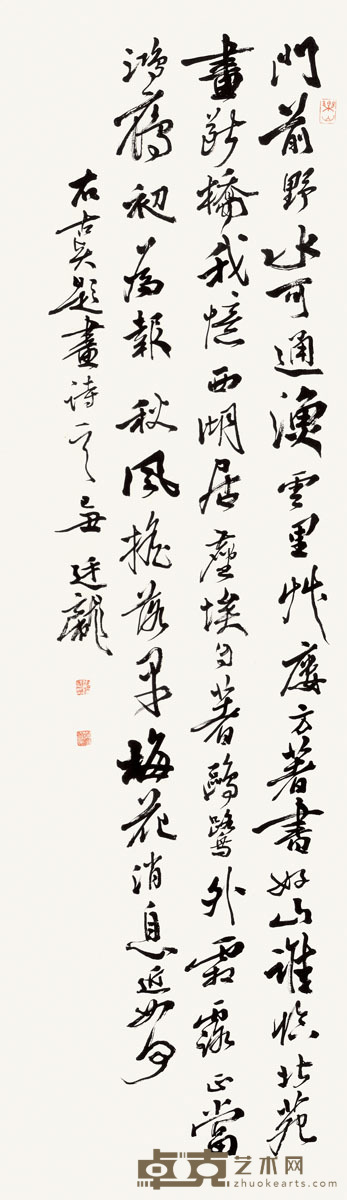 門前野水可通漁雲里艸廬方著書好山誰臨北苑
畫斷橋我憶西湖居塵埃自著鷗鷺外霜露正當
鴻雁初為報秋風搖落早梅花消息近如何
右古吴題畫诗廷龍
卓克艺术网
www.zhuokearts.com